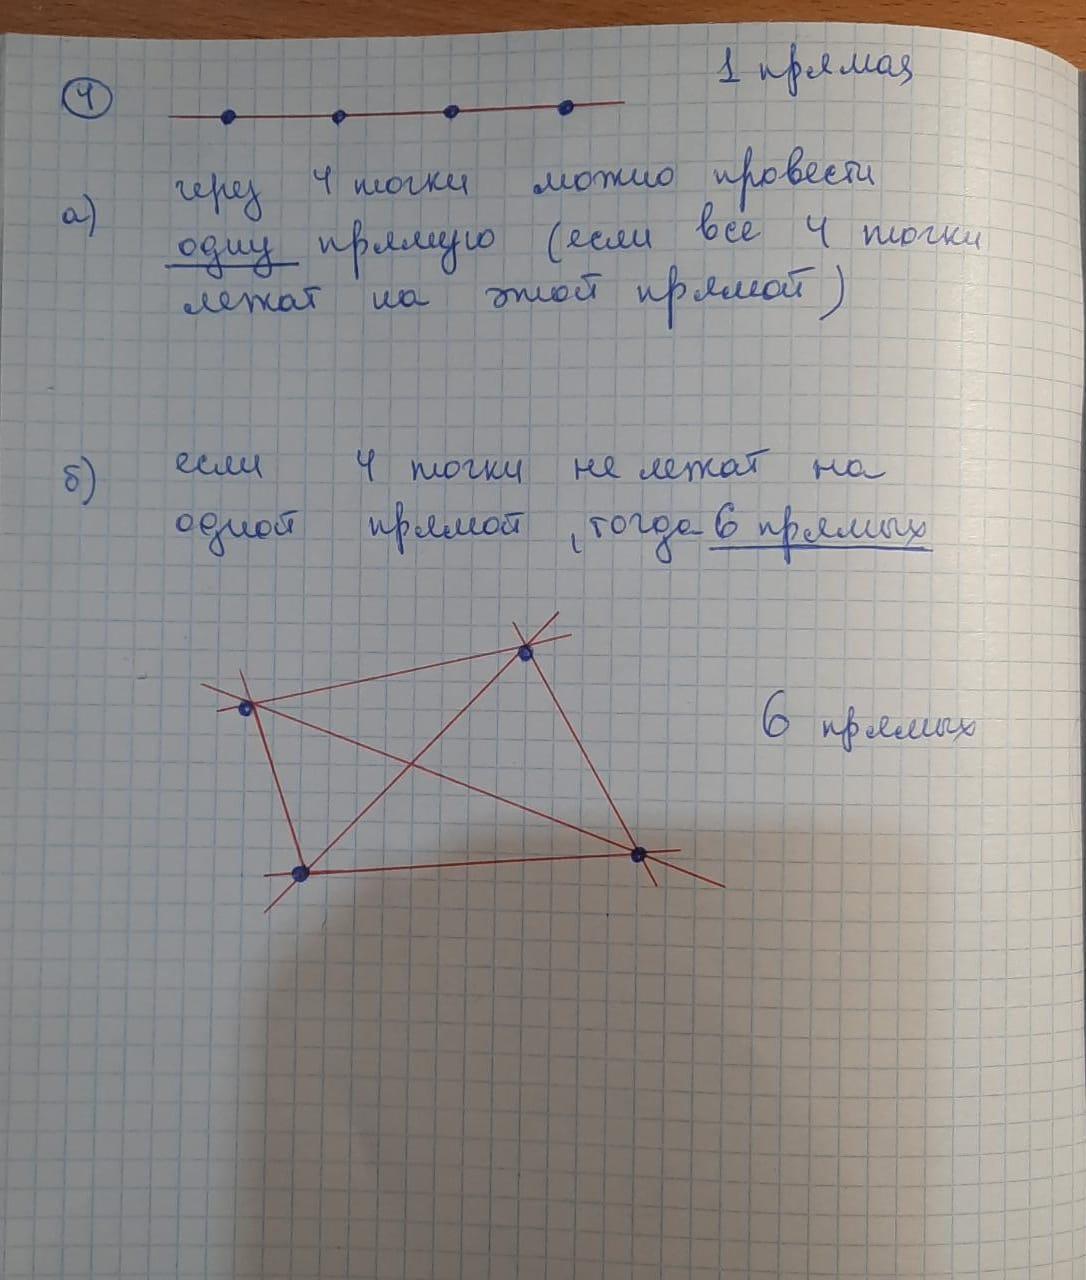 4
1 прямая
через 4 точки можно провести
а)
одну прямую (если все 4 точки
лежат на этой прямой)
б) если 4 точки не лежат на
одной прямой, тогда 6 прямых
6 прямых